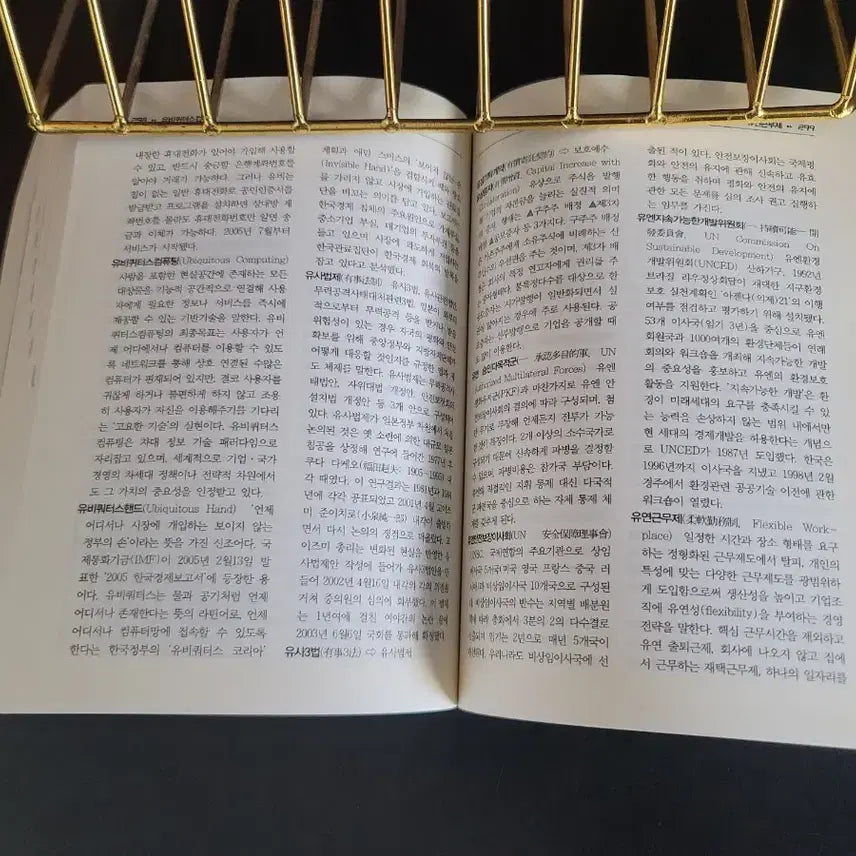 유비쿼터스컴
내장한 휴대전화가 있어야 가입해 사용할
수 있고, 반드시 송금할 은행계좌번호를
알아야 거래가 가능하다. 그러나 유비는
칩이 없는 일반 휴대전화로 공인인증서를
발급받고 프로그램을 설치하면 상대방 계
좌번호를 몰라도 휴대전화번호만 알면 송
금과 이체가 가능하다. 2005년 7월부터
서비스가 시작됐다.
유비쿼터스컴퓨팅(Ubiquitous Computing)
사람을 포함한 현실공간에 존재하는 모든
대상들을 기능적 공간적으로 연결해 사용
자에게 필요한 정보나 서비스를 즉시에
제공할 수 있는 기반기술을 말한다. 유비
쿼터스컴퓨팅의 최종목표는 사용자가 언
제 어디에서나 컴퓨터를 이용할 수 있도
록 네트워크를 통해 상호 연결된 수많은
컴퓨터가 편재되어 있지만, 결코 사용자를
귀찮게 하거나 불편하게 하지 않고 조용
히 사용자가 자신을 이용해주기를 기다리
는 '고요한 기술'의 실현이다. 유비쿼터스
컴퓨팅은 차대 정보 기술 패러다임으로
자리잡고 있으며, 세계적으로 기업·국가
경영의 차세대 정책이나 전략적 차원에서
도 그 가치의 중요성을 인정받고 있다.
유비쿼터스핸드(Ubiquitous Hand) '언제
어디서나 시장에 개입하는 보이지 않는
정부의 손'이라는 뜻을 가진 신조어다. 국
제통화기금(IMF)이 2005년 2월13일 발
표한 '2005 한국경제보고서'에 등장한 용
어다. 유비쿼터스는 물과 공기처럼 언제
어디서나 존재한다는 뜻의 라틴어로, 언제
어디서나 컴퓨터망에 접속할 수 있도록
한다는 한국정부의 '유비쿼터스 코리아'
계획과 애덤 스미스의 '보이지 않는 손
(Invisible Hand)'을 결합시켜 때와 장소
를 가리지 않고 시장에 개입하는 한국
단을 비꼬는 의미를 담고 있다. 보고서는
한국경제 침체의 주요원인으로 가계부채
중소기업 부실, 대기업의 투자부진 등을
들고 있으며 시장에 과도하게 개입하는
한국관료집단이 한국경제 회복의 발목을
잡고 있다고 분석했다.
유사법제(有事法制) 유사3법, 유사관련법
무력공격사태대처관련3법. 일본이 외부의
적으로부터 무력공격 등을 받거나 받을
위험성이 있는 경우 자국의 평화와 안전
확보를 위해 중앙정부와 지방자치단체가
어떻게 대응할 것인지를 규정한 법과 제
도 체제를 말한다. 유사법제는 무력공격사
태법안, 자위대법 개정안, 안전보장회의
설치법 개정안 등 3개 안으로 구성되어
있다. 유사법제가 일본정부 차원에서 처음
논의된 것은 옛 소련에 의한 대규모 일본
침공을 상정해 연구에 들어간 1977년 후
쿠다 다케오(福田赳夫: 1905~1995) 때
다. 이 연구결과는 1981년과 1984
년에 각각 공표되었고 2001년 4월 고이즈
미 준이치로(小泉純一郎) 내각이 출범하
면서 다시 논의의 쟁점으로 떠올랐다. 고
이즈미 총리는 변화된 현실을 반영한
사법제안 작성에 들어가 유사3법안을 만
들어 2002년 4월16일 내각의 각의 의결을
거쳐 중의원의 심의에 회부했다. 이 법제
는 1년여에 걸친 여야간의 논란 끝에
2003년 6월6일 국회를 통과해 확정됐다.
유사3법(有事3法) ⇨ 유사법제
유연근무제
⇨ 보호예수
Capital Increase with
유상으로 주식을 발행
자본금을 늘리는 실질적 의미
형태는 ▲구주주 배정 ▲제3자
배정 등 3가지다. 구주주 배정
기존주주에게 소유주식에 비례하는 신
우선권을 주는 것이며, 제3자 배
회사의 특정 연고자에게 권리를 주
방식이다. 불특정다수를 대상으로 한
시가발행이 일반화되면서 실
주로 사용된다. 공
기업을 공개할 때
많이 이용한다.
承認多目的軍, UN
Authorized Multilateral Forces) 유엔
(PKF)과 마찬가지로 유엔 안
이사회의 결의에 따라 구성되며, 첨
무장해 언제든지 전투가 가능
특징이다. 2개 이상의 소수국가로
신속하게 파병을 결정할
있으며, 파병비용은 참가국 부담이다.
직접적인 지휘 통제 대신 다국적
중심으로 하는 자체 통제 체
갖추게 된다.
유엔안전보장이사회(UN 安全保障理事會)
UNSC. 국제연합의 주요기관으로 상임
이사국 5개국(미국 영국 프랑스 중국 러
시아)과 비상임이사국 10개국으로 구성된
다. 비상임이사국의 반수는 지역별 배분원
칙에 따라 총회에서 3분의 2의 다수결로
선출되며 임기는 2년으로 매년 5개국이
개선된다. 우리나라도 비상임이사국에 선
출된 적이 있다. 안전보장이사회는 국제평
화와 안전의 유지에 관해 신속하고 유효
한 행동을 취하며 평화와 안전의 유지에
관한 모든 문제를 심의 조사 권고 집행하
는 임무를 가진다.
유엔지속가능한개발위원회(―持續可能―開
發委員會, UN Commission On
Sustainable Development) 유엔환경
개발위원회(UNCED) 산하기구. 1992년
브라질 리우정상회담이 채택한 지구환경
보호 실천계획인 '아젠다(의제)21'의 이행
여부를 점검하고 평가하기 위해 설치됐다.
53개 이사국(임기 3년)을 중심으로 유엔
회원국과 1000여개의 환경단체들이 연례
회의와 워크숍을 개최해 지속가능한 개발
의 중요성을 홍보하고 유엔의 환경보호
활동을 지원한다. '지속가능한 개발'은 환
경이 미래세대의 요구를 충족시킬 수 있
는 능력을 손상하지 않는 범위 내에서만
현 세대의 경제개발을 허용한다는 개념으
로 UNCED가 1987년 도입했다. 한국은
1996년까지 이사국을 지냈고 1998년 2월
경주에서 환경관련 공공기술 이전에 관한
워크숍이 열렸다.
유연근무제(柔軟勤務制, Flexible Work-
place) 일정한 시간과 장소 형태를 요구
하는 정형화된 근무제도에서 탈피, 개인의
특성에 맞는 다양한 근무제도를 광범위하
게 도입함으로써 생산성을 높이고 기업조
직에 유연성(flexibility)을 부여하는 경영
전략을 말한다. 핵심 근무시간을 제외하고
유연 출퇴근제, 회사에 나오지 않고 집에
서 근무하는 재택근무제, 하나의 일자리를